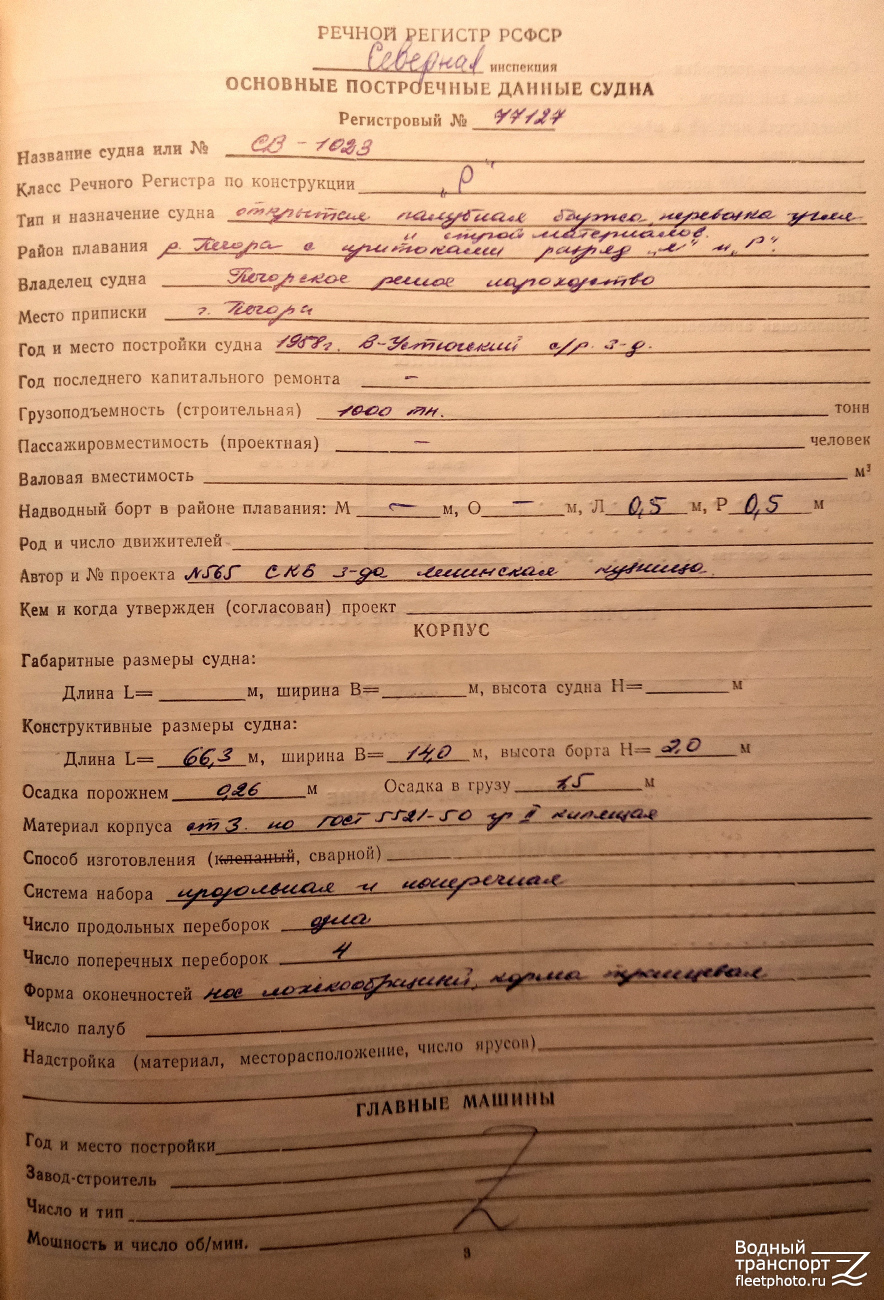 РЕЧНОЙ РЕГИСТР РСФСР
Северная инспекция
ОСНОВНЫЕ ПОСТРОЕЧНЫЕ ДАННЫЕ СУДНА
Регистровый № 77127
Название судна или № СВ-1023
Класс Речного Регистра по конструкции „Р“
Тип и назначение судна открытая палубная баржа, перевозка угля
и строй материалов.
Район плавания р. Печора с притоками разряд „Л“ и „Р“.
Владелец судна Печорское речное пароходство
Место приписки г. Печора
Год и место постройки судна 1958г. В-Устюгский с/р. з-д.
Год последнего капитального ремонта –
Грузоподъемность (строительная) 1000 тн. тонн
Пассажировместимость (проектная) – человек
Валовая вместимость м³
Надводный борт в районе плавания: М – м, О – м, Л 0,5 м, Р 0,5 м
Род и число движителей
Автор и № проекта №565 СКБ з-да ленинская кузница.
Кем и когда утвержден (согласован) проект
КОРПУС
Габаритные размеры судна:
Длина L= м, ширина B= м, высота судна H= м
Конструктивные размеры судна:
Длина L= 66,3 м, ширина B= 14,0 м, высота борта H= 2,0 м
Осадка порожнем 0,26 м Осадка в грузу 1,5 м
Материал корпуса ст 3. по ГОСТ 5521-50 гр II кипящая
Способ изготовления (клепаный, сварной)
Система набора продольная и поперечная
Число продольных переборок одна
Число поперечных переборок 4
Форма оконечностей нос ложкообразный, корма транцевая
Число палуб
Надстройка (материал, месторасположение, число ярусов)
ГЛАВНЫЕ МАШИНЫ
Год и место постройки
Завод-строитель
Число и тип
Мощность и число об/мин.
3
Водный
транспорт
fleetphoto.ru